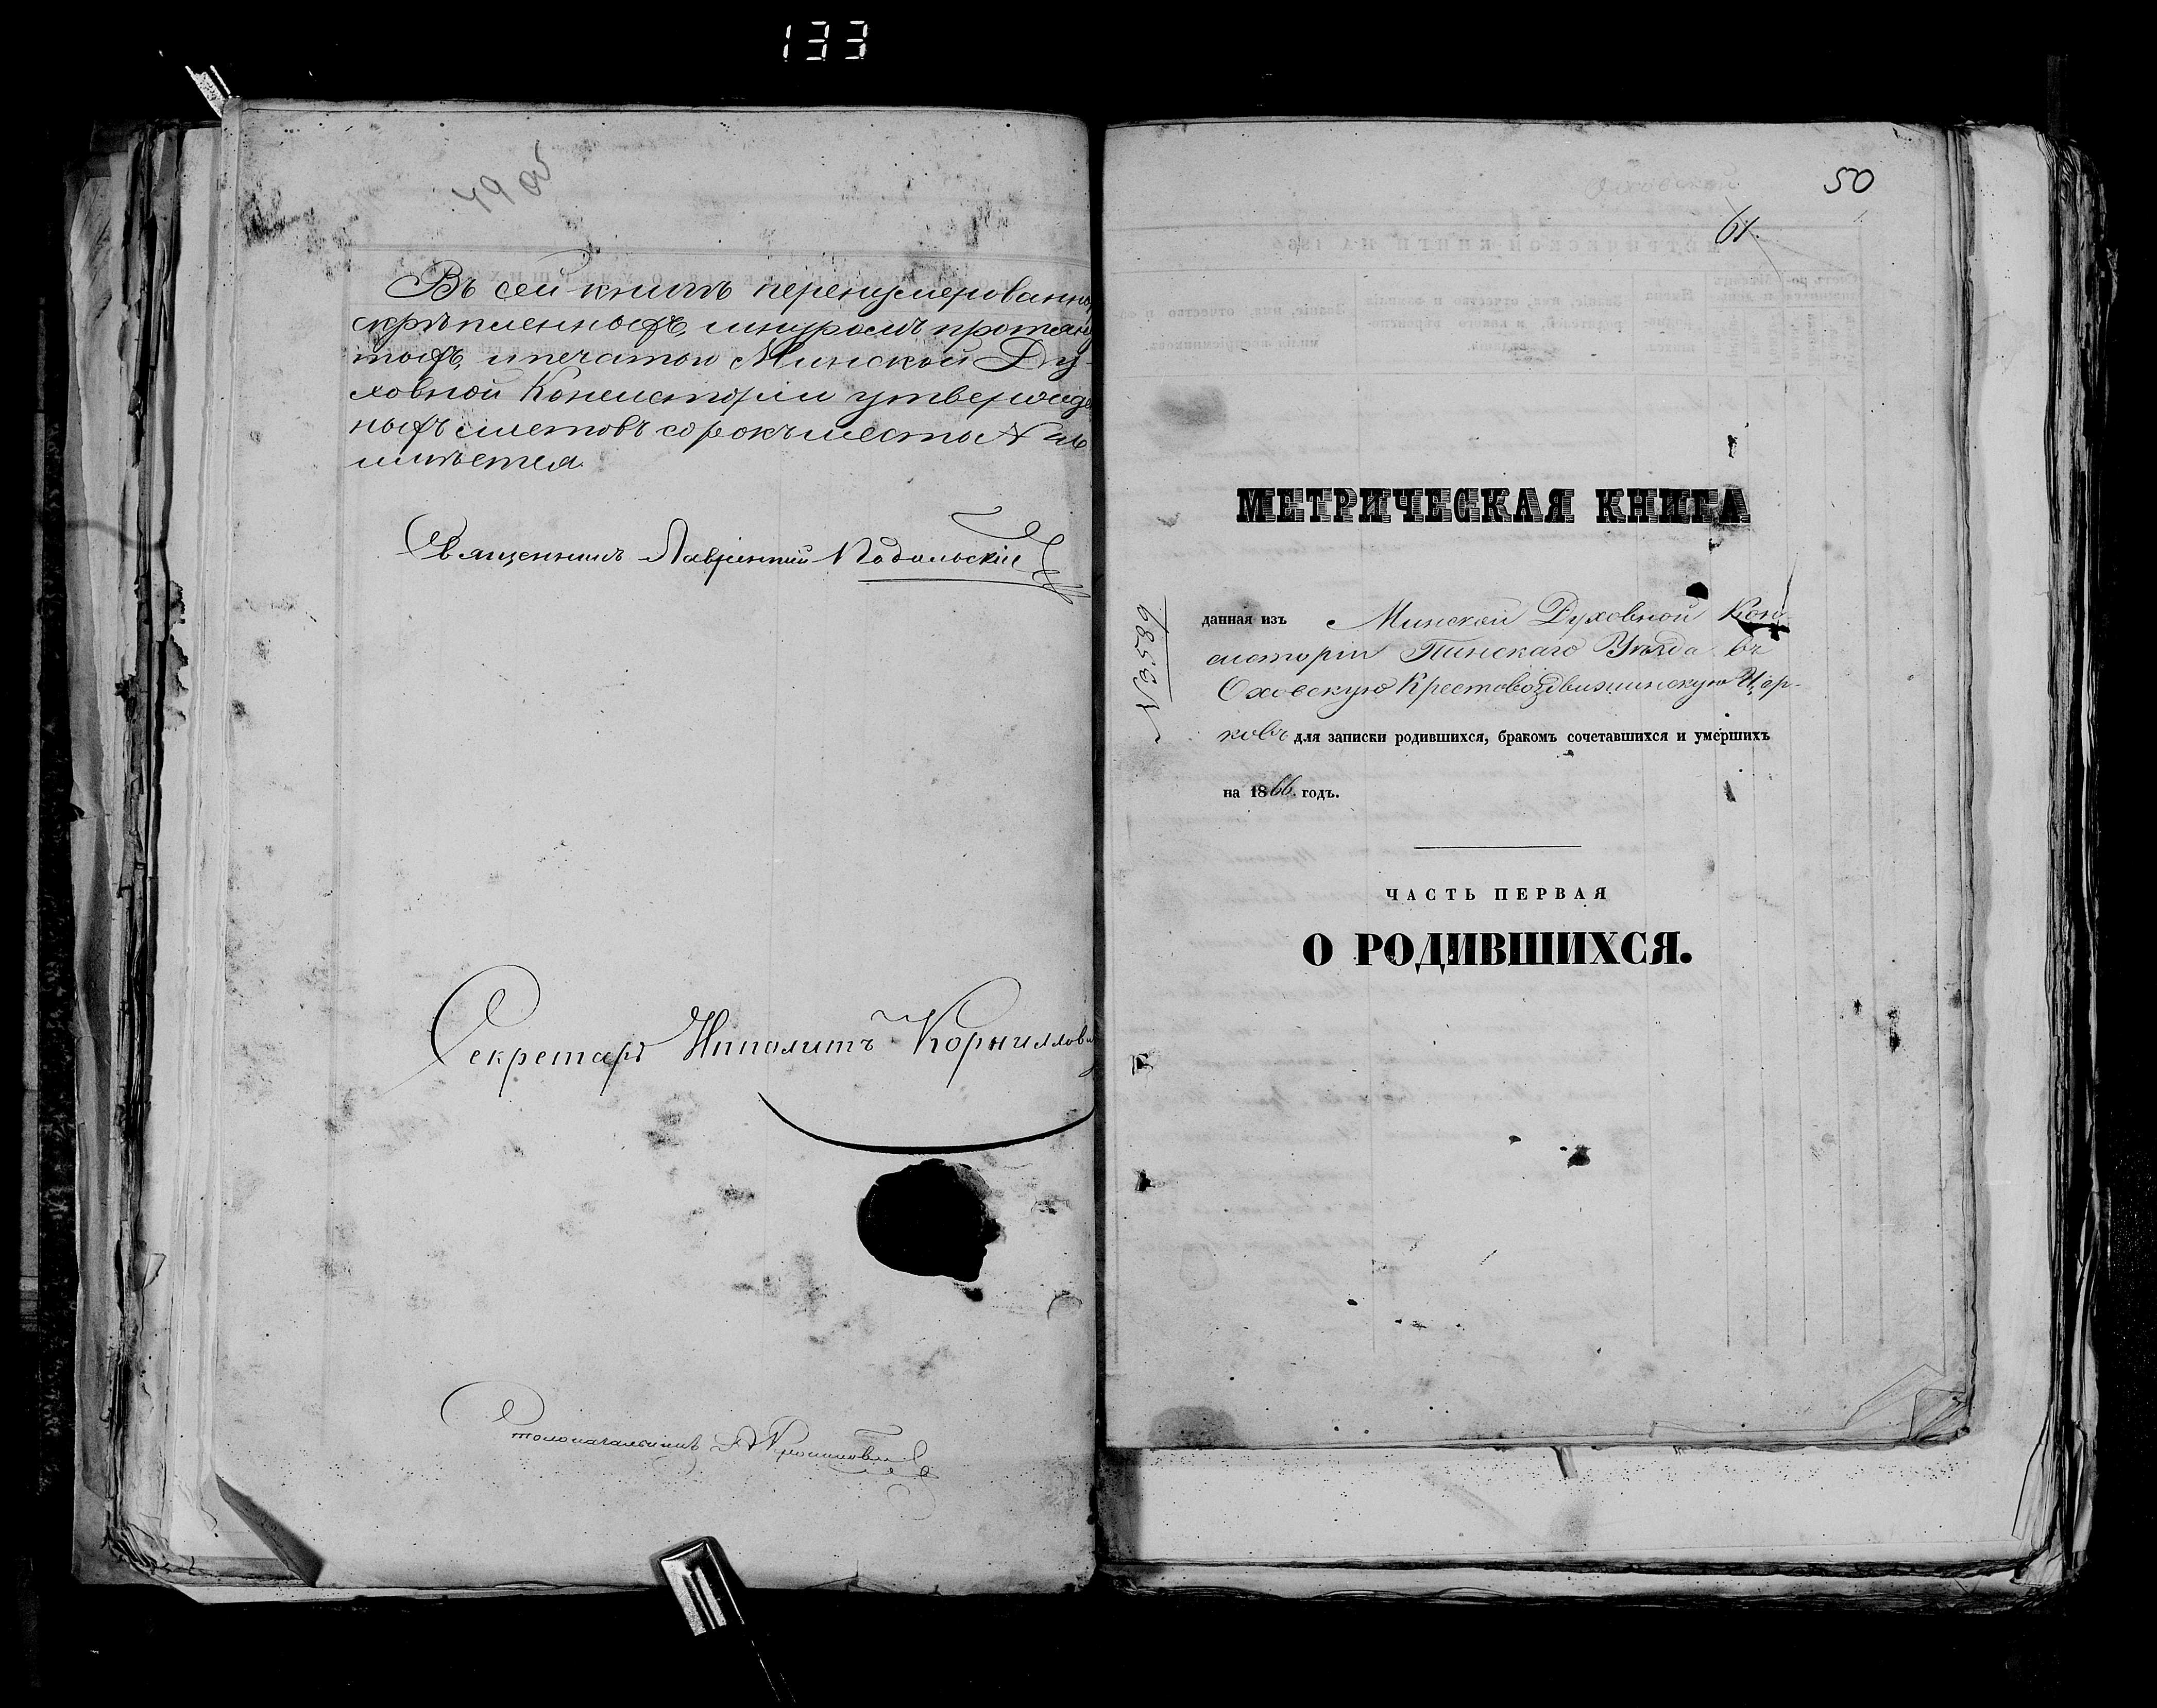 133
49 об
Въ сей книгѣ перенумерованны
скрѣпленныхъ, шнуромъ протяну
тыхъ, и печатью Минской Ду-
ховной Консисторіи утвержде
ныхъ листовъ сорокъ шесть
имѣется
Священникъ Лаврентий Подольскій
Секретарь Ипполитъ Корнилови
Столоначальникъ
50
61
МЕТРИЧЕСКАЯ КНИГА
данная изъ Минской Духовной Кон
систоріи Пинскаго Уѣзда въ
Оховскую Крестовоздвижинскую Цер-
ковь для записки родившихся, бракомъ сочетавшихся и умершихъ
на 1866 годъ.
ЧАСТЬ ПЕРВАЯ
О РОДИВШИХСЯ.
№ 3589